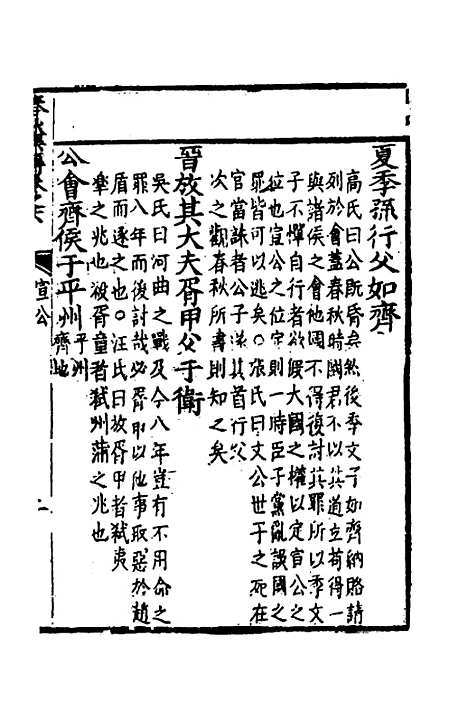 夏季孫行父如齊
高氏曰公旣昏矣然後季文子如齊納賂請
列於會蓋春秋時國君不以其道立苟得一
與諸侯之會他國不得復討其罪所以季文
子不憚自行者欲假大國之權以定宣公之
位也宣公之位定則一時臣子黨亂誤國之
罪皆可以逃矣○張氏曰文公世子之死在
官當誅者公子遂其首行父
次之觀春秋所書則知之矣
晉放其大夫胥甲父于衛
吳氏曰河曲之戰及今八年豈有不用命之
罪八年而後討哉必胥甲以他事取惡於趙
盾而逐之也○汪氏曰故胥甲者弒夷
臯之兆也殺胥童者弒州蒲之兆也
公會齊侯于平州
平州
齊地
宣公
二